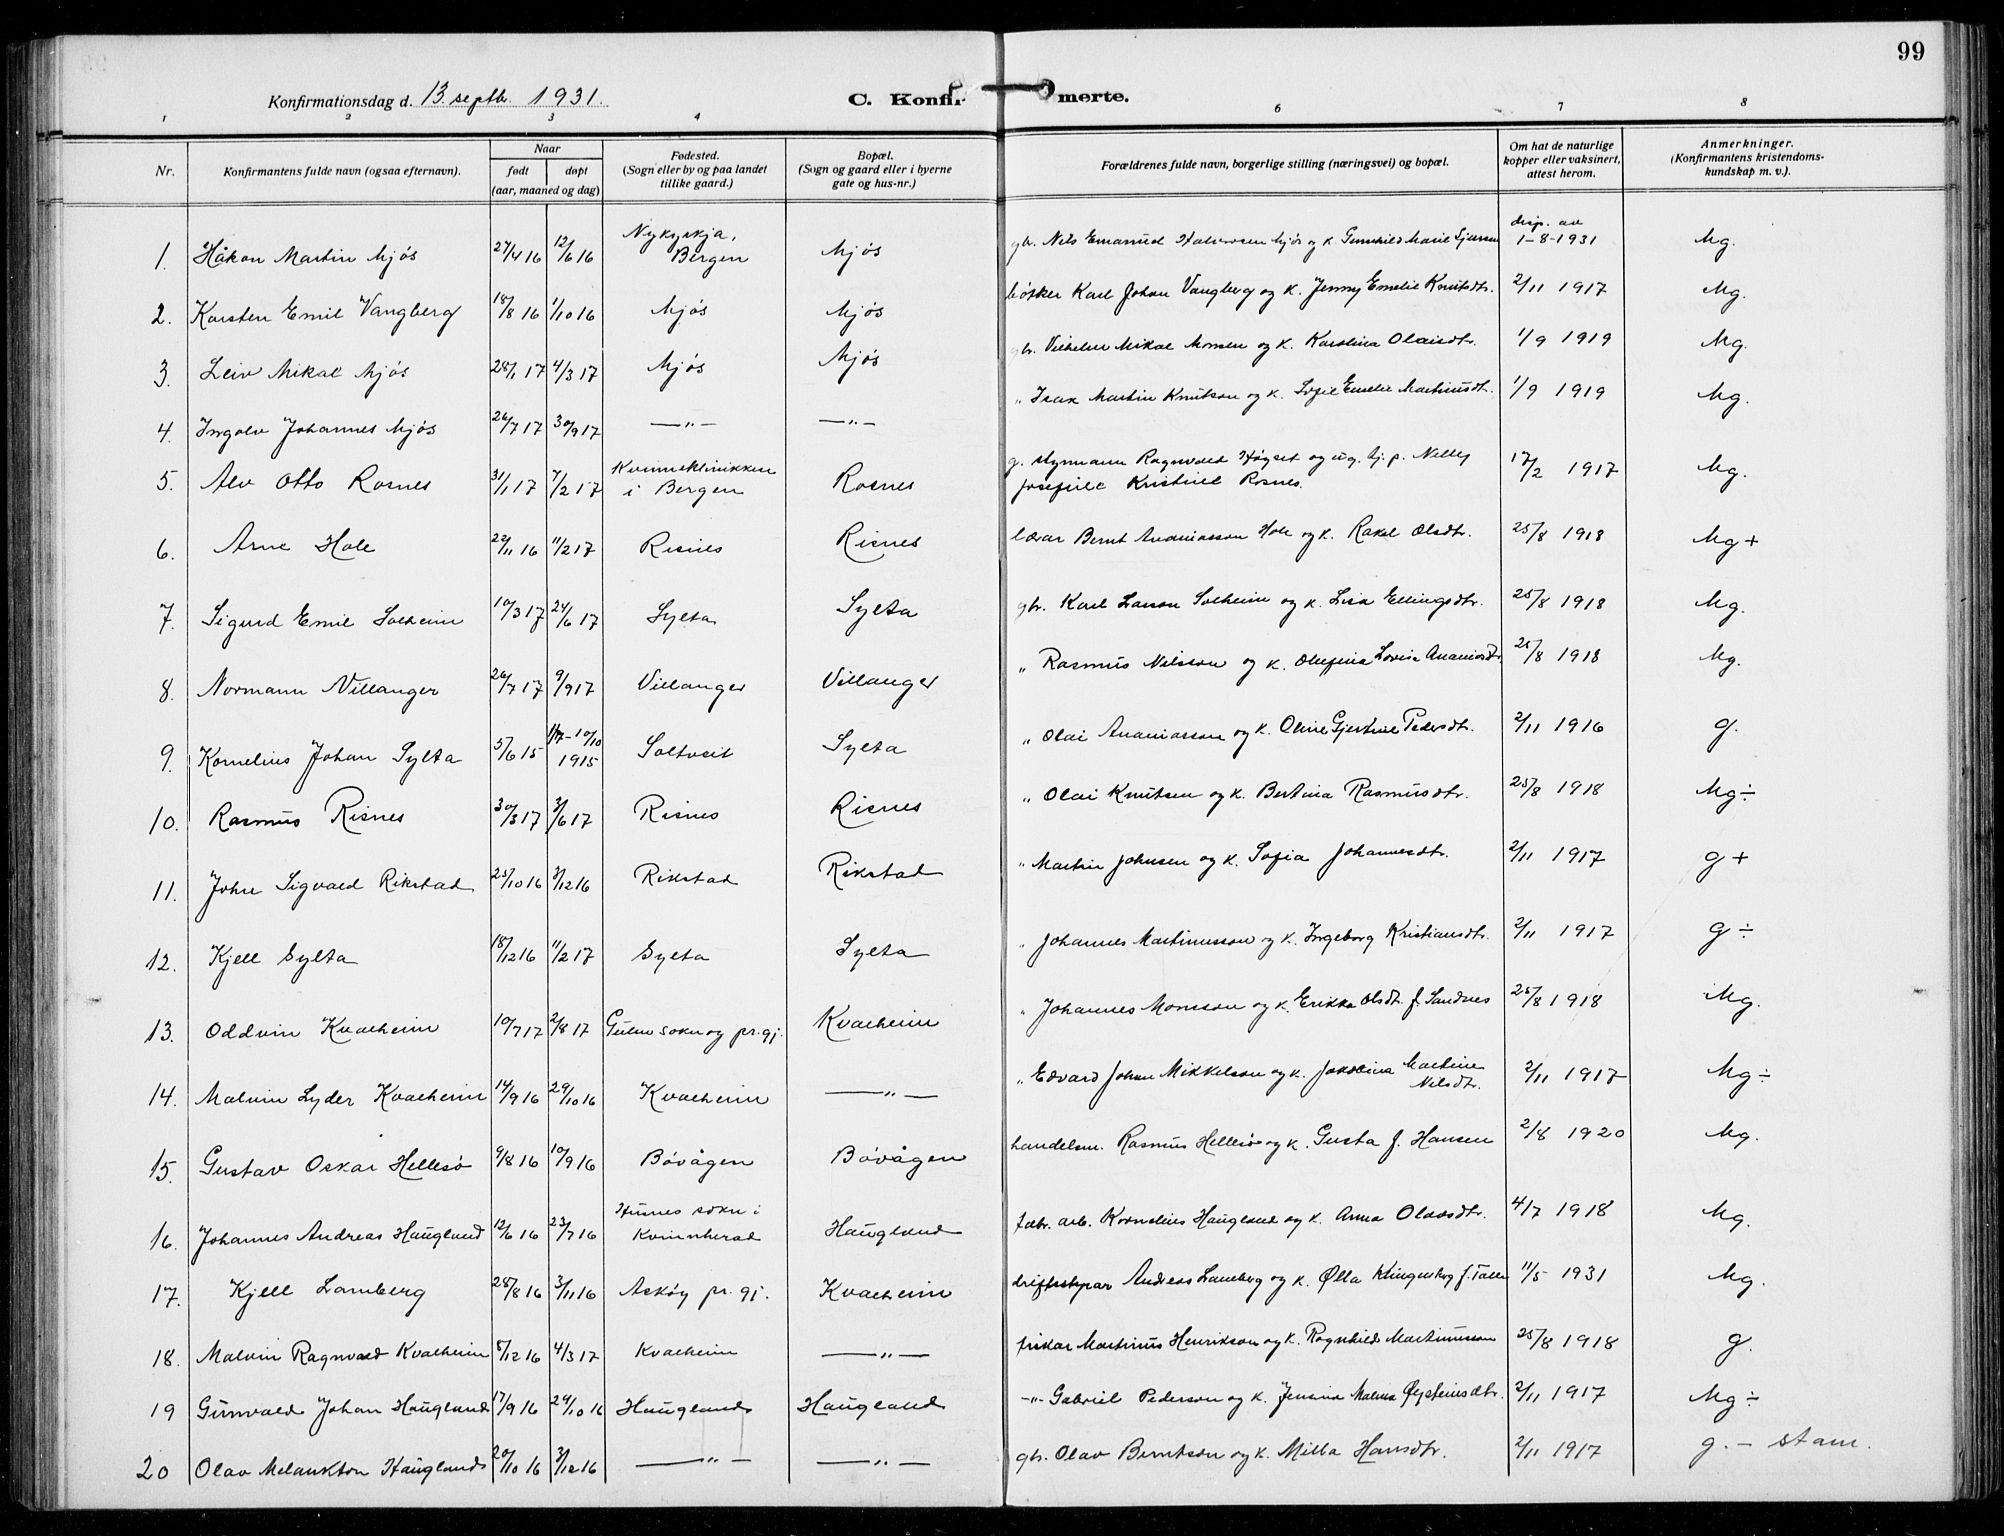 99
Konfirmationsdag d. 13. septb. 1931.
C. Konfir- merte.
1 2 3 4 5 6 7 8
Nr. Konfirmantens fulde navn (ogsaa efternavn). Naar født døpt (aar, maaned og dag) Fødested. (Sogn eller by og paa landet tillike gaard.) Bopæl. (Sogn og gaard eller i byerne gate og hus-nr.) Forældrenes fulde navn, borgerlige stilling (næringsvei) og bopæl. Om hat de naturlige kopper eller vaksinert, attest herom. Anmerkninger. (Konfirmantens kristendoms-kundskap m. v.).
1. Håkon Martin Mjøs 27/4 16 12/6 16 Nykyrkja, Bergen Mjøs gbr. Nils Emanuel Halvorsen Mjøs og k. Gunhild Marie disp. av 1-8-1931 Mg.
2. Karsten Emil Vangberg 18/8 16 1/10 16 Mjøs Mjøs bøtker Karl Johan Vangberg og k. Jenny Emelie Knutsdtr. 2/11 1917 Mg.
3. Leiv Mikal Mjøs 28/1 17 4/3 17 Mjøs Mjøs gbr. Vilhelm Mikal Monsen og k. Karolina Olaisdtr. 1/9 1919 Mg.
4. Ingolv Johannes Mjøs 26/7 17 30/9 17 —„— —„— „ Isak Martin Knutson og k. Sofie Emelie Martinusdt. 1/9 1919 Mg.
5. Alv Otto Rosnes 31/1 17 7/2 17 Kvinneklinikken i Bergen Rosnes g. styrmann Ragnvald Høyset og ug. tj. p. Nelly Josefine Kristine Rosnes. 17/2 1917 Mg.
6. Arne Hole 29/11 16 11/2 17 Risnes Risnes lærar Bernt Ananiasson Hole og k. Rakel Olsdtr. 25/8 1918 Mg +
7. Sigurd Emil Solheim 10/3 17 24/6 17 Sylta Sylta gbr. Karl Larson Solheim og k. Lisa Ellingsdtr. 25/8 1918 Mg.
8. Normann Villanger 26/7 17 9/9 17 Villanger Villanger „ Rasmus Nilsson og k. Olufina Lovise Ananiasdtr. 25/8 1918 Mg.
9. Kornelius Johan Sylta 5/6 15 10/10 1915 Soltveit Sylta „ Olai Ananiasson og k. Oline Gjertine Pedersdtr. 2/11 1916 g.
10. Rasmus Risnes 30/3 17 3/6 17 Risnes Risnes „ Olai Knutsen og k. Bertina Rasmusdtr. 25/8 1918 Mg ÷
11. John Sigvald Rikstad 25/10 16 3/12 16 Rikstad Rikstad „ Martin Johnsen og k. Sofia Johannesdtr. 2/11 1917 g +
12. Kjell Sylta 18/12 16 11/2 17 Sylta Sylta „ Johannes Martinusson og k. Ingeborg Kristiansdtr. 2/11 1917 g ÷
13. Oddvin Kvalheim 10/7 17 2/8 17 Gulen sokn og pr.gj. Kvalheim „ Johannes Monsson og k. Erikka Olsdtr. f. Sandnes 25/8 1918 Mg.
14. Malvin Lyder Kvalheim 14/9 16 29/10 16 Kvalheim —„— „ Edvard Johan Mikkelson og k. Jakobina Martine Nilsdtr. 2/11 1917 Mg ÷
15. Gustav Oskar Hellesø 9/8 16 10/9 16 Bøvågen Bøvågen handelsm. Rasmus Hellesø og k. Gusta f. Hansen 2/8 1920 Mg.
16. Johannes Andreas Haugland 12/6 16 23/7 16 Husnes sokn i Kvinnherad Haugland fabr. arb. Kornelius Haugland og k. Anna Olavsdtr. 4/7 1918 Mg.
17. Kjell Lamberg 28/8 16 3/11 16 Askøy pr. gj. Kvalheim driftsstyrar Andreas Lamberg og k. Ølla Klingenberg 11/5 1931 Mg.
18. Malvin Ragnvald Kvalheim 8/12 16 4/3 17 Kvalheim —„— fiskar Martinus Henrikson og k. Ragnhild Martinusson 25/8 1918 g.
19 Gunvald Johan Haugland 17/9 16 29/10 16 Haugland Haugland —„— Gabriel Pederson og k. Jensina Malena Øysteinsdtr. 2/11 1917 Mg ÷
20 Olav Melankton Haugland 20/10 16 3/12 16 —„— —„— gbr. Olav Berntson og k. Milla Hansdtr. 2/11 1917 g. – stam.